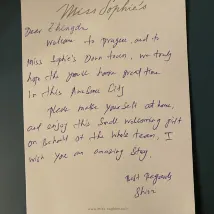 Miss Sophie's
Dear Zhingda
Welcome to prague, and to
Miss Sophie's Downtown, we truly
hope that you'll have a great time
In this Awesome City
Please make yourself at home,
and enjoy this Small welcoming gift
on Behalf of the whole team, I
wish you an amazing Stay.
Best Regards